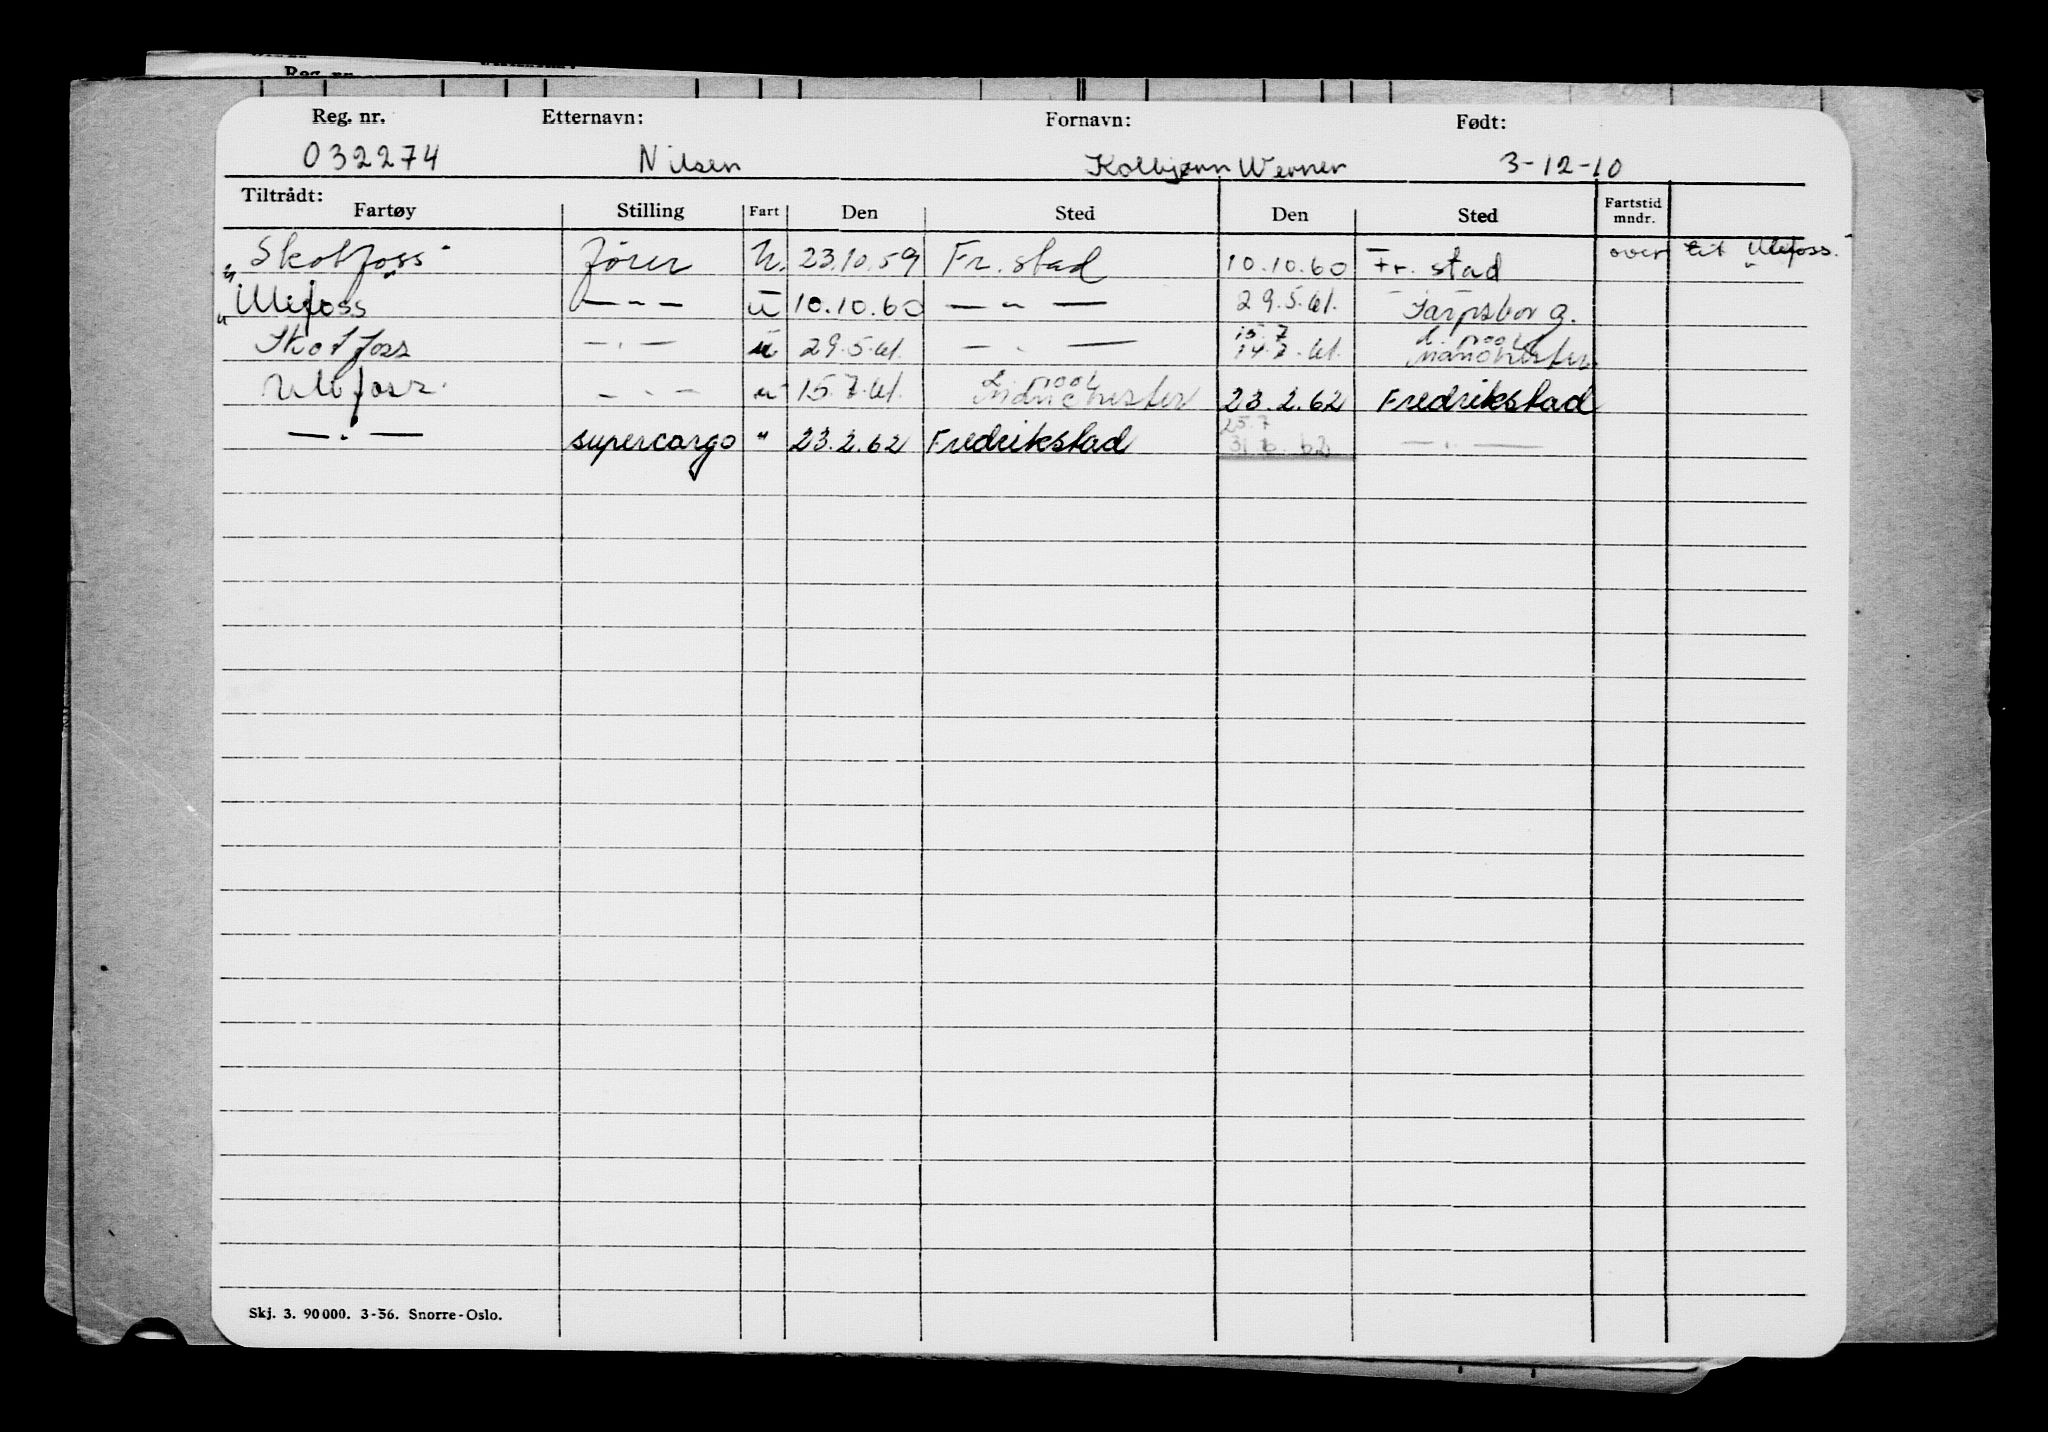 Reg. nr. Etternavn: Fornavn: Født:
032274 Nilsen Kolbjørn Werner 3-12-10
Tiltrådt:
Fartøy Stilling Fart Den Sted Den Sted Fartstid mndr.
"Skotfoss" fører U. 23.10.59 Fr. stad 10.10.60 Fr. stad over til "Ulefoss."
"Ulefoss — " — u 10.10.60 — " — 29.5.61. Sarpsborg.
Skotfoss — " — u 29.5.61. — " — 15.7 14.7.61. L.pool Manchester
Ulefoss — " — u 15.7.61. L.pool Manchester 23.2.62 Fredrikstad
— " — supercargo " 23.2.62 Fredrikstad 25.7 31.6.62 — " —
Skj. 3. 90000. 3-56. Snorre-Oslo.